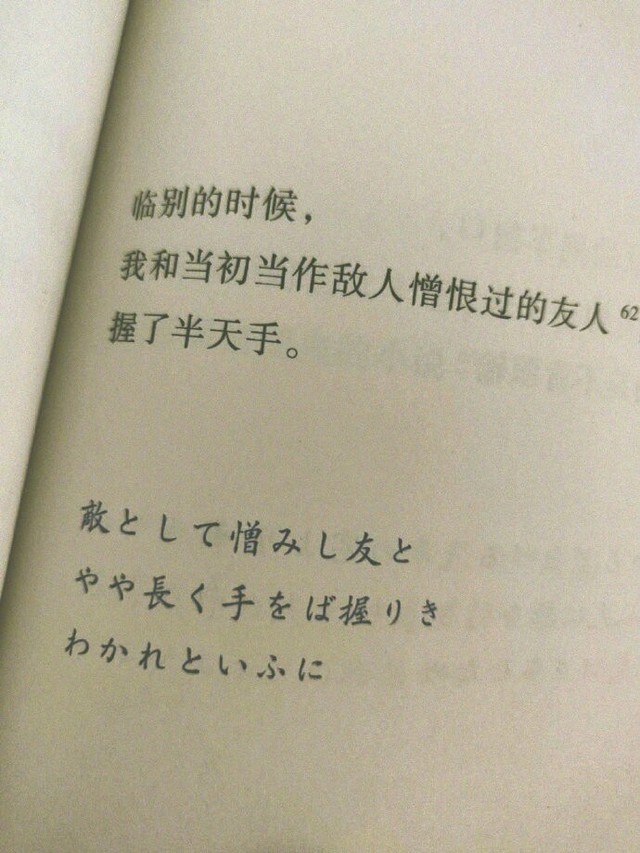 临别的时候，
我和当初当作敌人憎恨过的友人62
握了半天手。
敵として憎みし友と
やや長く手をば握りき
わかれといふに